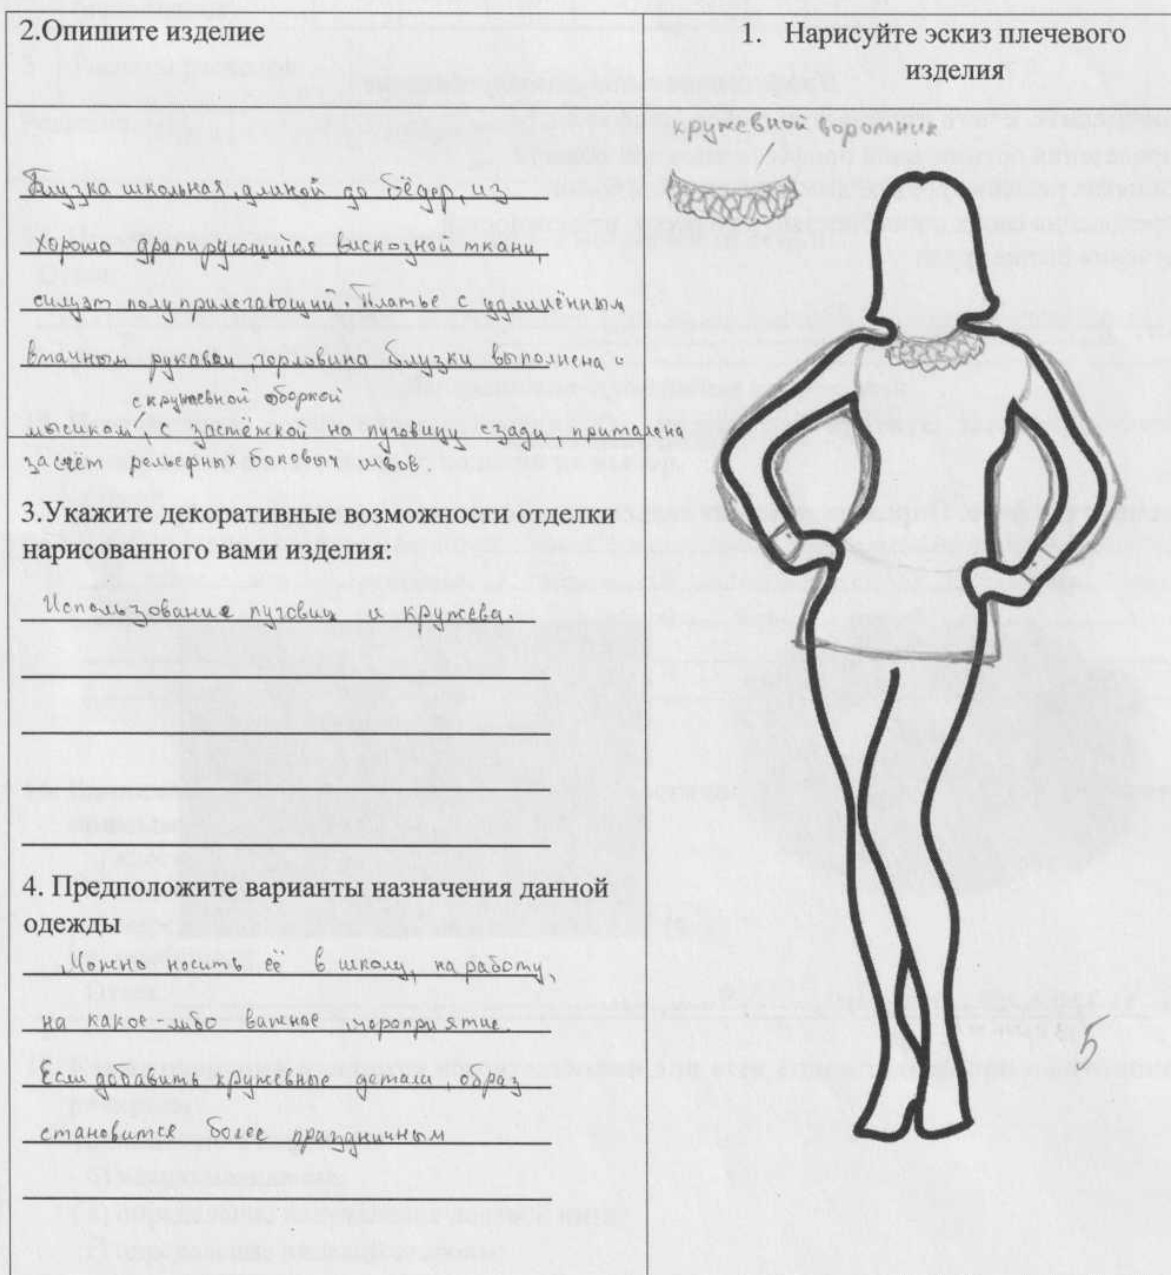 2.Опишите изделие
Блузка школьная, длиной до бёдер, из
хорошо драпирующийся вискозной ткани,
силуэт полуприлегающий. Платье с удлинённым
втачным рукавом, горловина блузки выполнена с
с кружевной оборкой
мысиком, с застёжкой на пуговицу сзади, приталена
за счёт рельефных боковых швов.
3.Укажите декоративные возможности отделки
нарисованного вами изделия:
Использование пуговиц и кружева.
4. Предположите варианты назначения данной
одежды
Можно носить её в школу, на работу,
на какое-либо важное мероприятие.
Если добавить кружевные детали, образ
становится более праздничным
1. Нарисуйте эскиз плечевого
изделия
кружевной воротник
5